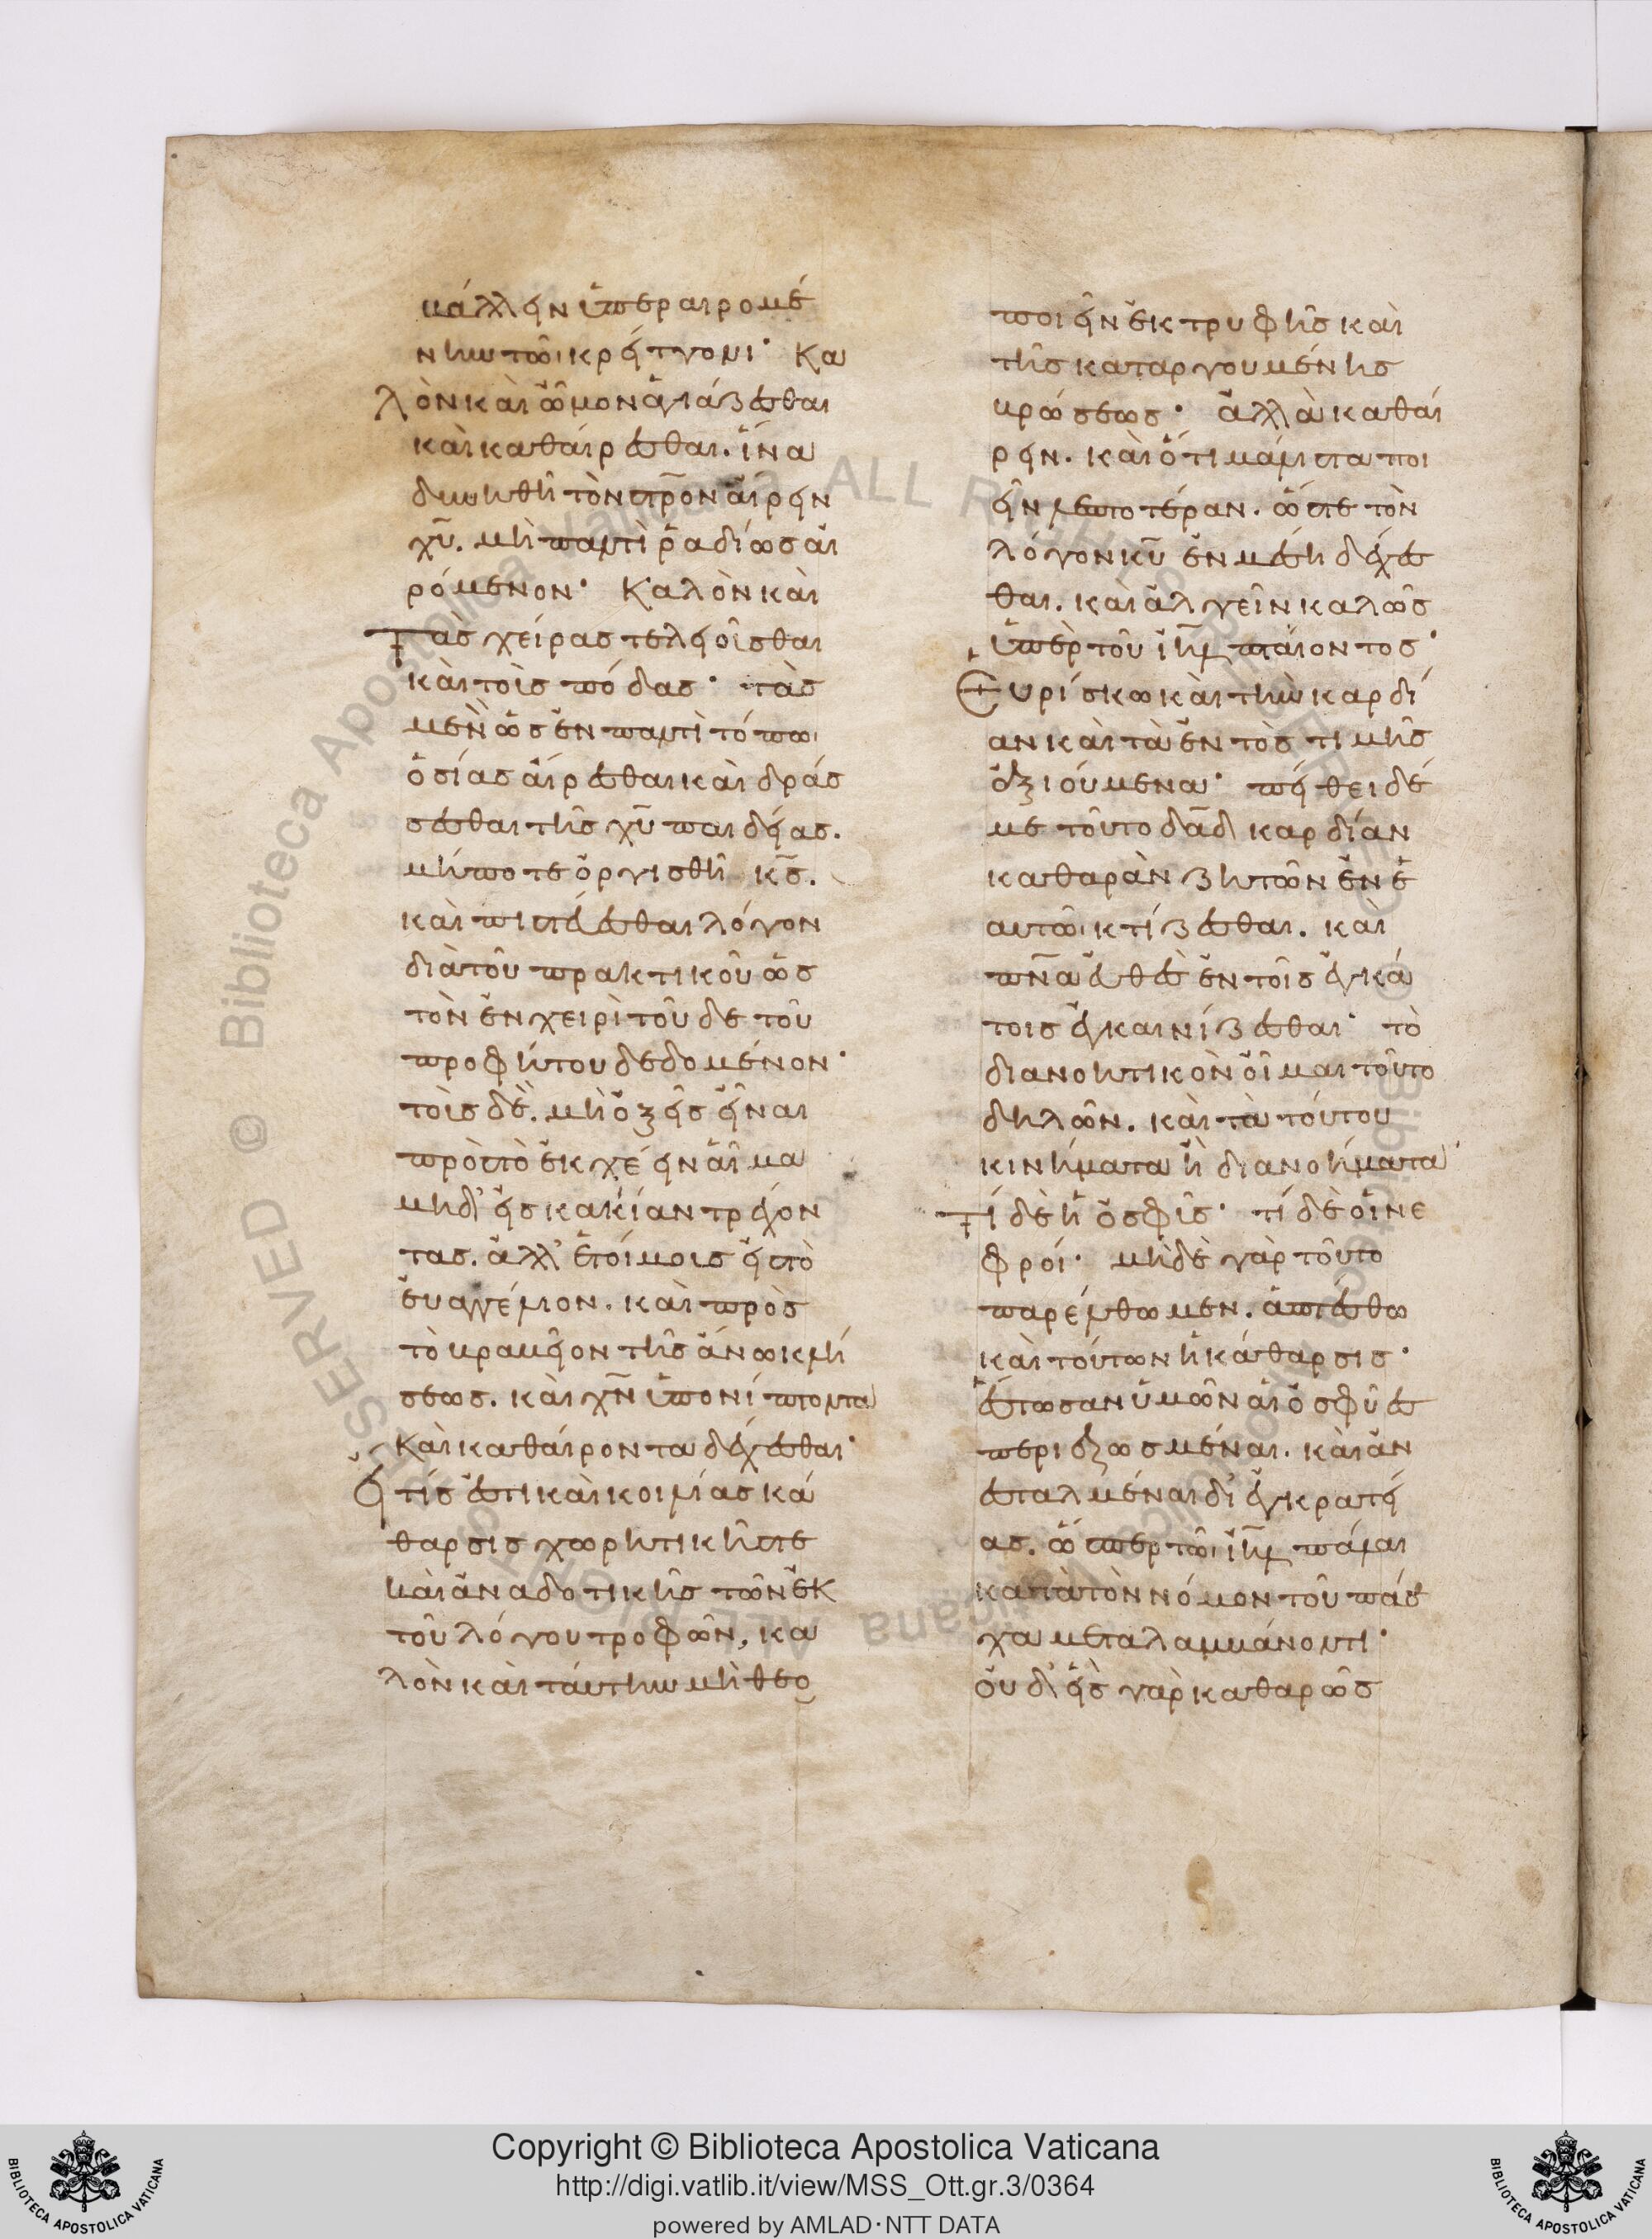 βάλλειν ὑπεραιρομέ
νην τῶι κρείττονι· Κα
λὸν καὶ ὦμον ἁγιάζεσθαι
καὶ καθαίρεσθαι. ἵνα
δυνηθῆ τὸν στρ̅ον αἴρειν
χυ̅. μὴ παντὶ ῥαδίως αἰ
ρόμενον· Καλὸν καὶ
τὰς χεῖρας τελειοῦσθαι
καὶ τοὺς πόδας· τὰς
μὲν ὡς ἐν παντὶ τόπωι
ὁσίας αἴρεσθαι καὶ δράσ
σεσθαι τῆς χυ̅ παιδείας.
μήποτε ὀργισθῆ κς̅.
καὶ πιστεύεσθαι λόγον
διὰ τοῦ πρακτικοῦ ὡς
τὸν ἐν χειρὶ τοῦδε τοῦ
προφήτου δεδομένον·
τοὺς δὲ. μὴ ὀξεῖς εἶναι
πρὸς τὸ ἐκχέειν αἷμα
μηδ' εἰς κακίαν τρέχον
τας. ἀλλ' ἑτοίμους εἰς τὸ
εὐαγγέλιον. καὶ πρὸς
τὸ βραβεῖον τῆς ἄνω κλή
σεως. καὶ χν̅ ὑπονίπτοντα
καὶ καθαίροντα δέχεσθαι·
Εἴ τίς ἐστι καὶ κοιλίας κά
θαρσις χωρητικῆς τε
καὶ ἀναδοτικῆς τῶν ἐκ
τοῦ λόγου τροφῶν, κα
λὸν καὶ ταύτην μὴ θεο
ποιεῖν ἐκ τρυφῆς καὶ
τῆς καταργουμένης
βρώσεως· ἀλλὰ καθαί
ρειν. καὶ ὅτι μάλιστα ποι
εῖν λεπτοτέραν. ὥστε τὸν
λόγον κυ̅ ἐν μέση δέχεσ
θαι. καὶ ἀλγεῖν καλῶς
ὑπὲρ τοῦ ιηλ̅ πταίοντος·
Εὑρίσκω καὶ τὴν καρδί
αν καὶ τὰ ἐντὸς τιμῆς
ἀξιούμενα· πείθει δέ
με τοῦτο δαδ̅ καρδίαν
καθαρὰν ζητῶν ἐν ἑ
αυτῶι κτίζεσθαι. καὶ
πνα̅ εὐθὲς ἐν τοῖς ἐγκά
τοις ἐγκαινίζεσθαι· τὸ
διανοητικὸν οἶμαι τοῦτο
δηλῶν. καὶ τὰ τούτου
κινήματα ἢ διανοήματα·
τί δὲ ἡ ὀσφῦς· τί δὲ οἱ νε
φροί· μὴ δὲ γὰρ τοῦτο
παρέλθωμεν. ἁπτέσθω
καὶ τούτων ἡ κάθαρσις·
ἔστωσαν ὑμῶν αἱ ὀσφύες
περιεζωσμέναι. καὶ ἀν
εσταλμέναι δι' ἐγκρατεί
ας. ὥσπερ τῶι ιηλ̅ πάλαι
κατὰ τὸν νόμον τοῦ πάσ
χα μεταλαμβάνοντι·
οὐδεὶς γὰρ καθαρῶς
© Biblioteca Apostolica Vaticana ALL RIGHTS RESERVED
Copyright © Biblioteca Apostolica Vaticana
http://digi.vatlib.it/view/MSS_Ott.gr.3/0364
powered by AMLAD·NTT DATA
BIBLIOTECA APOSTOLICA VATICANA
BIBLIOTECA APOSTOLICA VATICANA